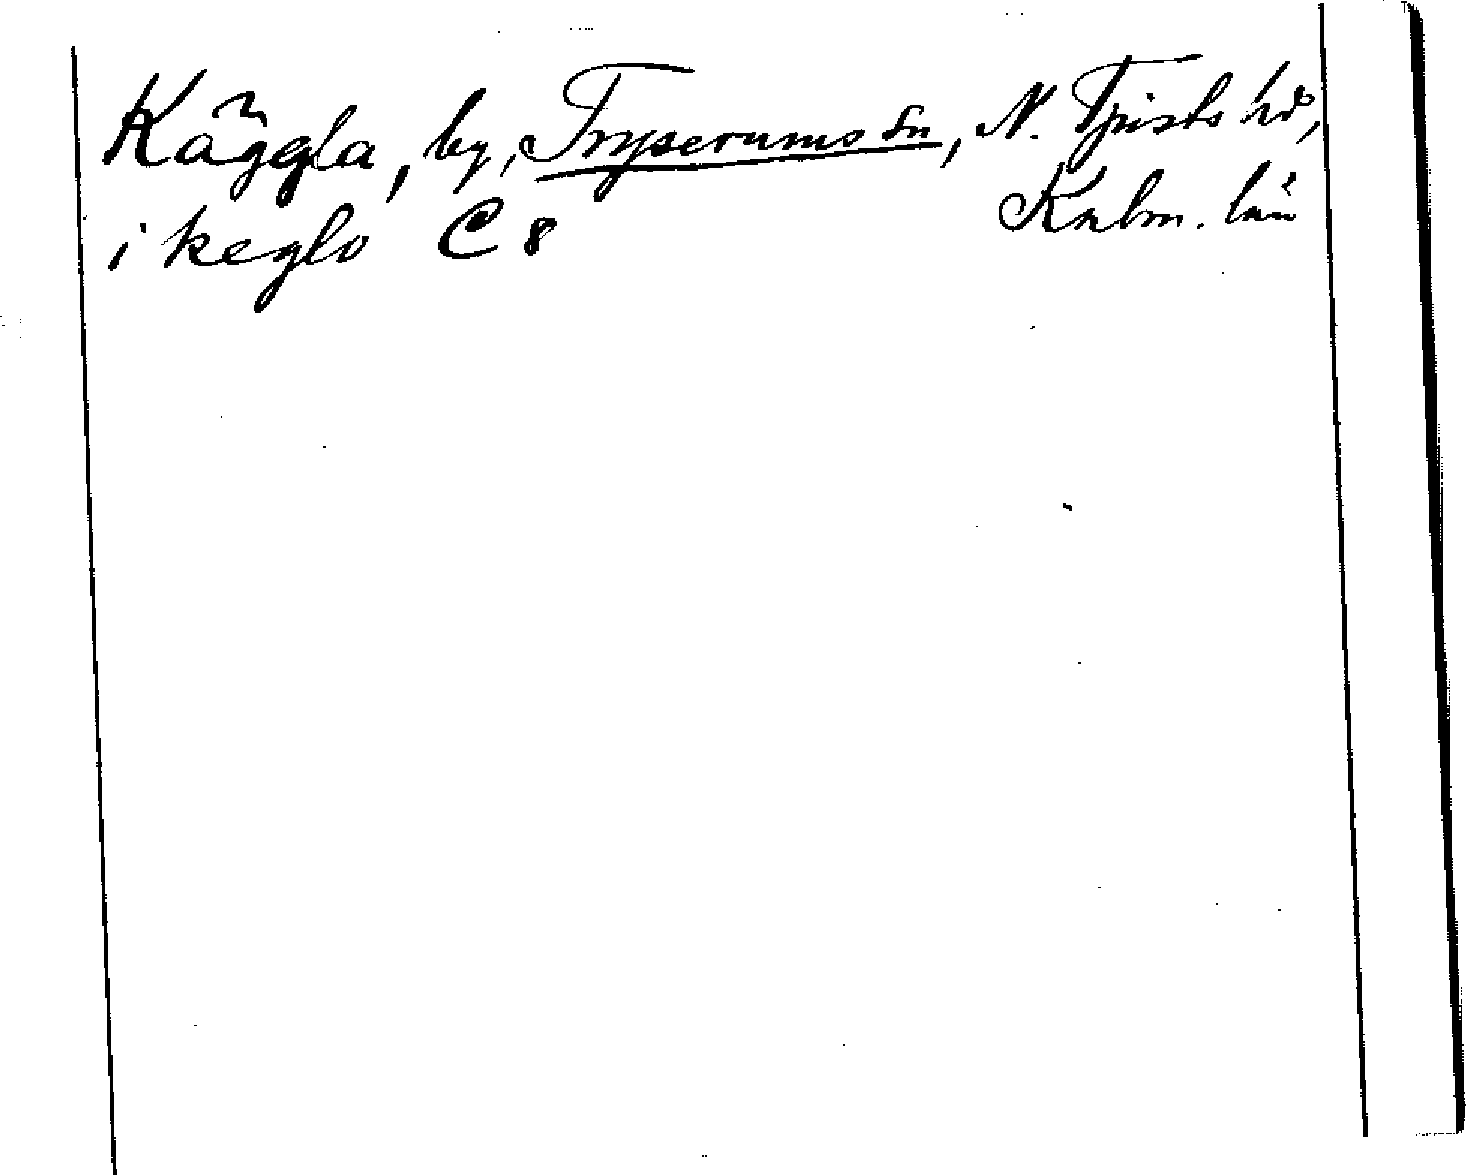 Käggla, by, Tryserums sn, N. Tjusts hd,
Kalm. län
i keglo C 8